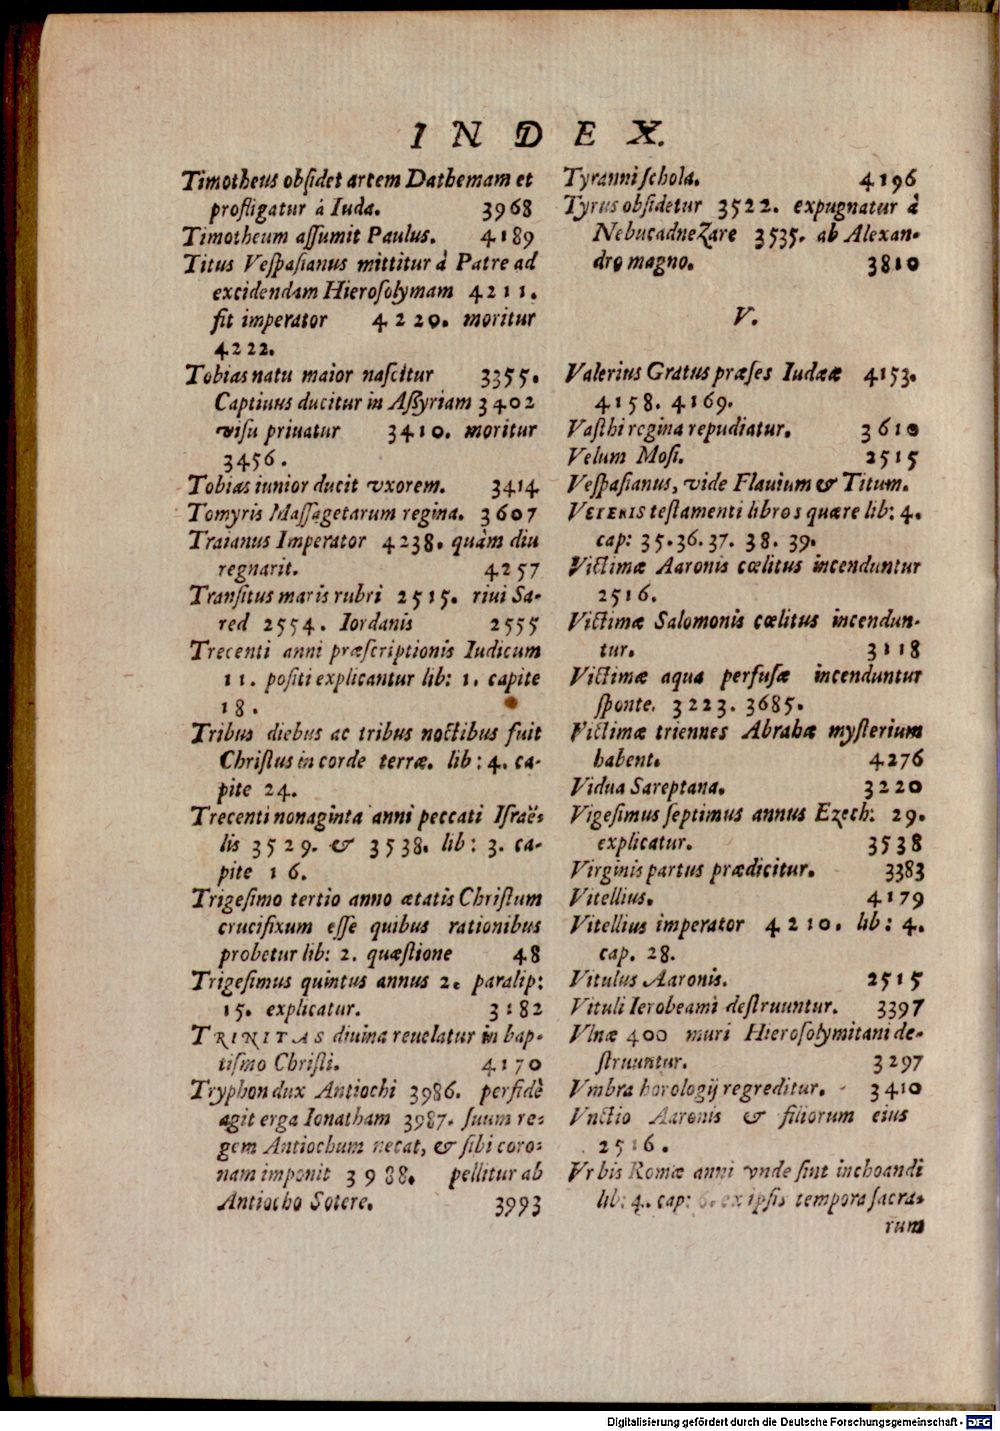 INDEX.
Timotheus obſidet artem Dathemam et
profligatur à Iuda. 3968
Timotheum aſſumit Paulus. 4189
Titus Veſpaſianus mittitur à Patre ad
excidendam Hieroſolymam 4211.
fit imperator 4220. moritur
4222.
Tobias natu maior naſcitur 3355.
Captiuus ducitur in Aſſyriam 3402
viſu priuatur 3410. moritur
3456.
Tobias iunior ducit vxorem. 3414
Tomyris Maſſagetarum regina. 3607
Traianus Imperator 4238. quàm diu
regnarit. 4257
Tranſitus maris rubri 2515. riui Sa-
red 2554. Iordanis 2555
Trecenti anni præſcriptionis Iudicum
11. poſiti explicantur lib: 1. capite
18.
Tribus diebus ac tribus noctibus fuit
Chriſtus in corde terræ. lib: 4. ca-
pite 24.
Trecenti nonaginta anni peccati Iſraë-
lis 3529. & 3538. lib: 3. ca-
pite 16.
Trigeſimo tertio anno ætatis Chriſtum
crucifixum eſſe quibus rationibus
probetur lib: 2. quæſtione 48
Trigeſimus quintus annus 2. paralip:
15. explicatur. 3182
TRINITAS diuina reuelatur in bap-
tiſmo Chriſti. 4170
Tryphon dux Antiochi 3986. perfidè
agit erga Ionatham 3987. ſuum re-
gem Antiochum necat, & ſibi coro-
nam imponit 3988. pellitur ab
Antiocho Sotere. 3993
Tyranni ſchola. 4196
Tyrus obſidetur 3522. expugnatur à
Nebucadnezare 3535. ab Alexan-
dro magno. 3810
V.
Valerius Gratus præſes Iudææ 4153.
4158. 4169.
Vaſthi regina repudiatur. 3610
Velum Moſi. 2515
Veſpaſianus, vide Flauium & Titum.
VETERIS teſtamenti libros quære lib: 4.
cap: 35. 36. 37. 38. 39.
Victimæ Aaronis cœlitus incenduntur
2516.
Victimæ Salomonis cœlitus incendun-
tur. 3118
Victimæ aqua perfuſæ incenduntur
ſponte. 3223. 3685.
Victimæ triennes Abrahæ myſterium
habent. 4276
Vidua Sareptana. 3220
Vigeſimus ſeptimus annus Ezech: 29.
explicatur. 3538
Virginis partus prædicitur. 3383
Vitellius. 4179
Vitellius imperator 4210. lib: 4.
cap. 28.
Vitulus Aaronis. 2515
Vituli Ierobeami deſtruuntur. 3397
Vlnæ 400 muri Hieroſolymitani de-
ſtruuntur. 3297
Vmbra horologij regreditur. 3410
Vnctio Aaronis & filiorum eius
2516.
Vrbis Romæ anni vnde ſint inchoandi
lib: 4. cap: 6. ex ipſis tempora ſacra-
rum
Digitalisierung gefördert durch die Deutsche Forschungsgemeinschaft - DFG